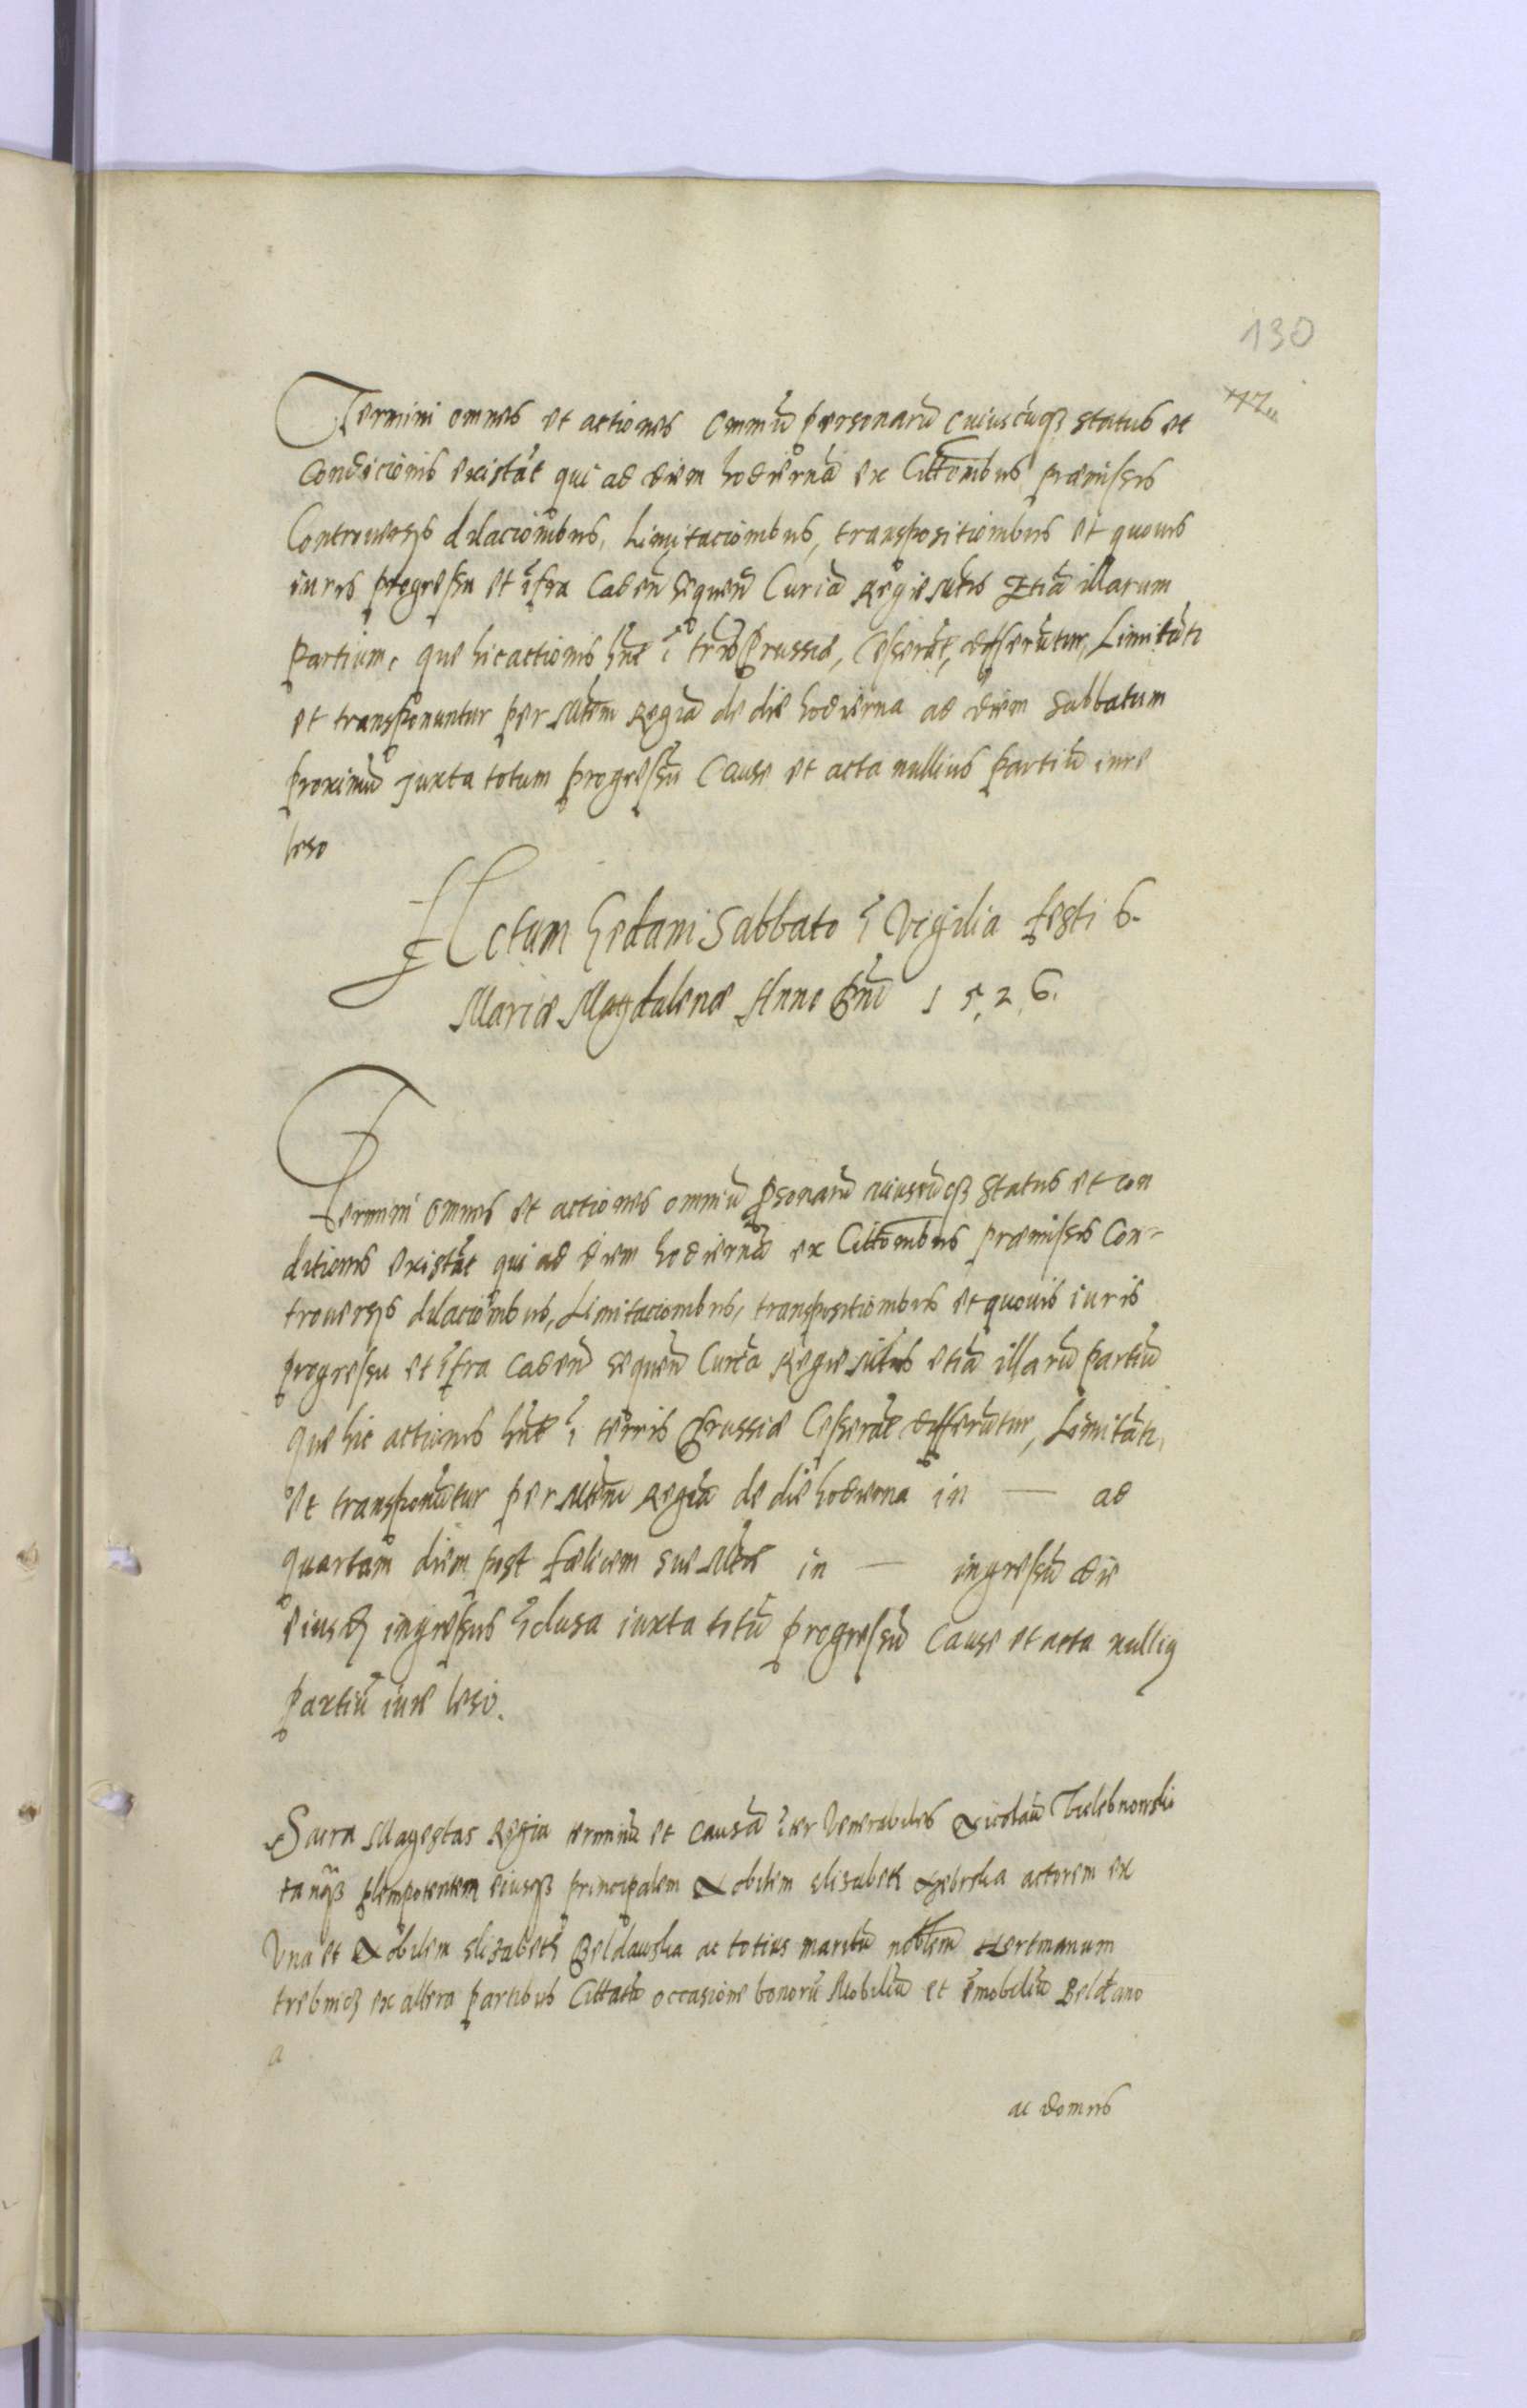 130
Termini omnes et actiones omniũ personarũ cuiuscũqз status et
condicionis existãt qui ad diem hodiernã ex Cittõnibus præmissis
Controuersijs dilacionibus, Limitacionibus, transpositionibus et quouis
iuris progressu et ĩfra Caden̄ sequen̄ Curiã Regie Mtis Etiã illarum
Partium, que hic actionis hn̄t ĩ tr̄is Prussiæ, Cesserãt, differũtur, Limitãtr
et transponuntur per Mtem Regiã de die hodierna ad diem Sabbatum
proximũ juxta totum progressũ Cause et acta nullius partiũ iure
leso
Actum Gedani Sabbato ĩ Vigilia festi S.
Mariæ Magdalenæ Anno Dnĩ 1526.
Termini omnes et actiones omniũ psonarũ cuiuscũqз status et con
ditionis existãt qui ad diem hodiernã ex Cittõnibus præmissis Con-
trouersijs dilacionibus, Limitacionibus, transpositionibus et quouis iuris
progressu et ĩfra Caden̄ sequen̄ Curiã Regie Mtis etiã illarũ partiũ
que hic actionis hn̄t ĩ terris Prussiæ Cesserãt differũtur, Limitãtr,
et transponũtur per Mtem Regiã de die hodierna in — ad
quartam diem post fœlicem sue Mtis in — ingressũ die
eiusdз ingressus ĩclusa iuxta totũ progressũ Cause et acta nullius
partiũ iure leso.
Sacra Magestas Regia terminũ et causã ĩter Venerabiles Nicolaũ
tanqз plenipotentem eiusqз principalem Nobilem Elisabeth actorem ex
Vna et Nobilem Elisabeth Beldauska ac totius maritũ nobilem Hertmanum
ex altera partibus Cittatũ occasione bonorũ Mobiliũ et ĩmobiliũ Beldano
a
ac domus